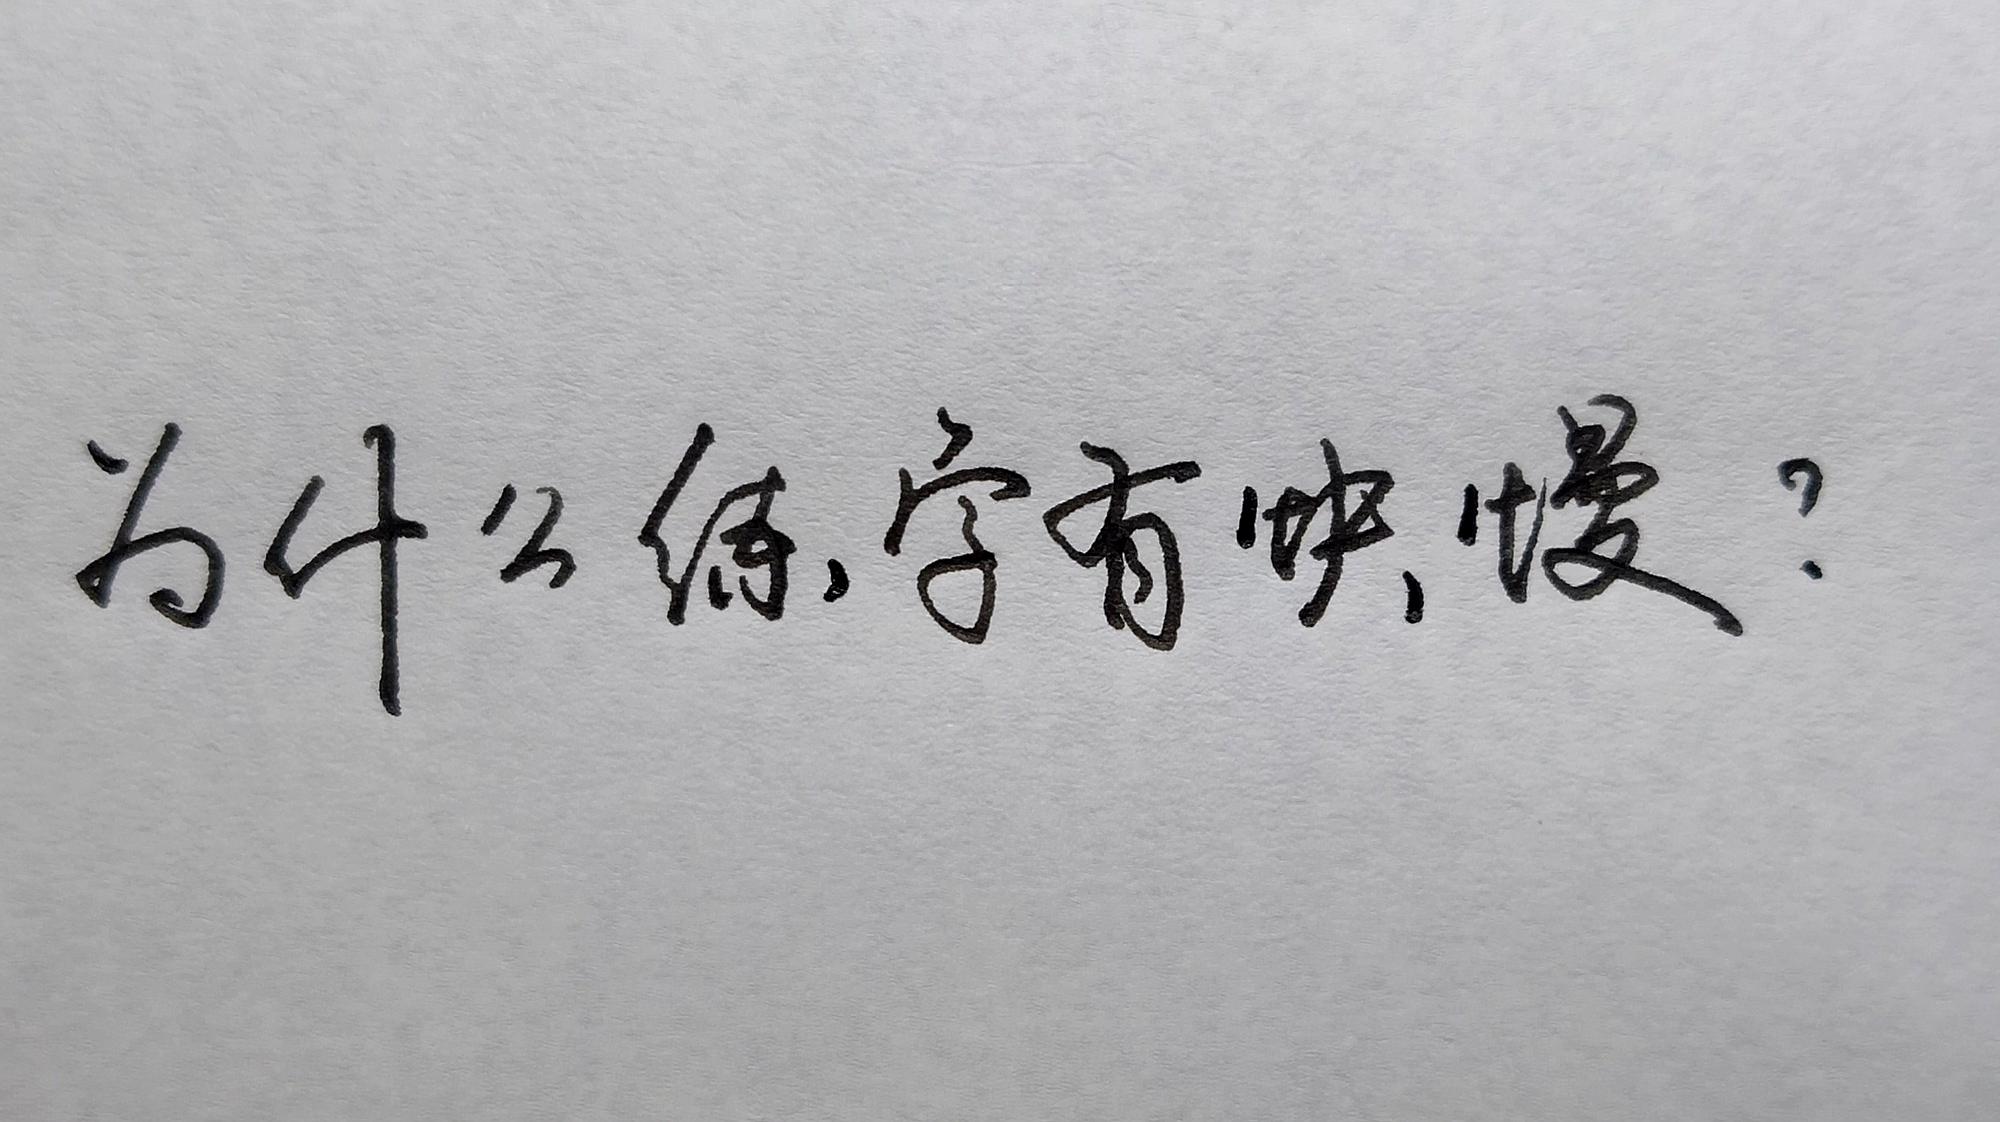 为什么练字有快慢?